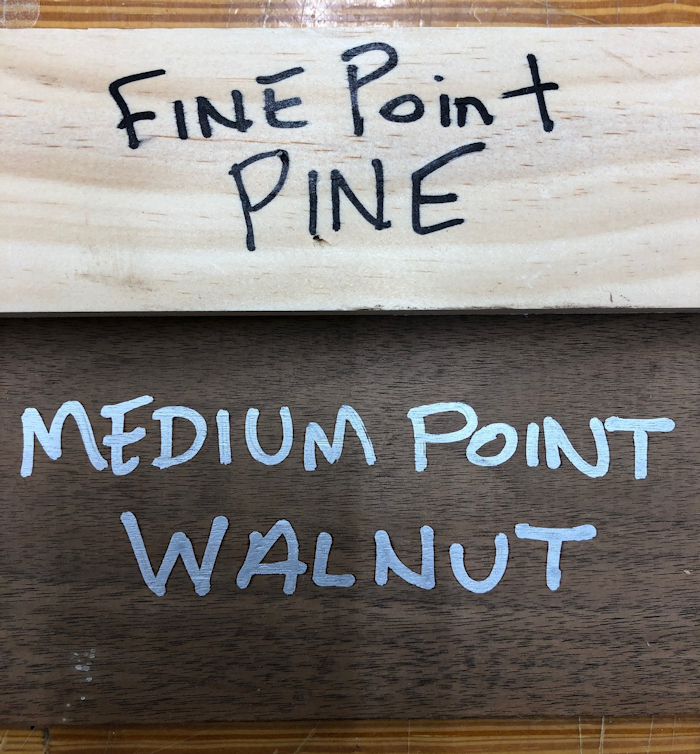 FINE Point
PINE
MEDIUM POINT
WALNUT